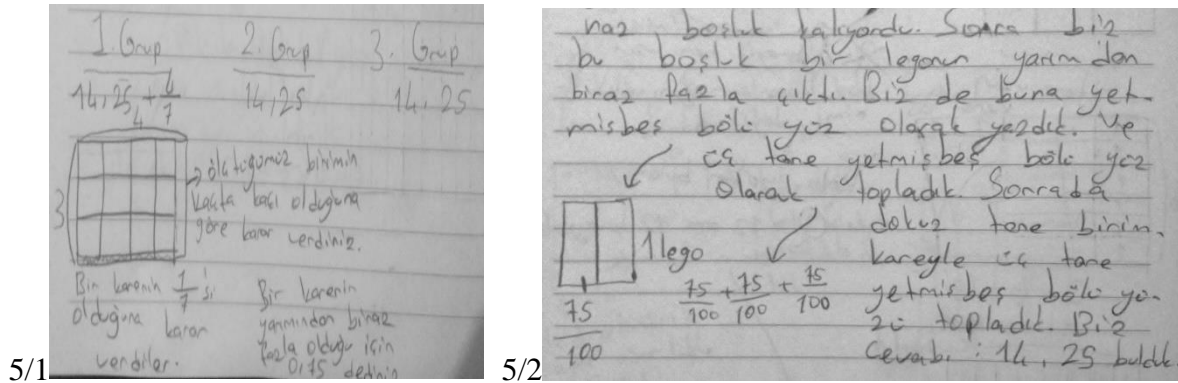 1. Grup 2. Grup 3. Grup
14,25 + 6/7 14,25 14,25
4
3
→ ölçtüğümüz birimin
kaçta kaçı olduğuna
göre karar verdiniz.
Bir karenin 1/7 si
olduğuna karar
verdiler.
Bir karenin
yarımından biraz
fazla olduğu için
0,75
5/1
boşluk kalıyordu. Sonra biz
bu boşluk bir legonun yarımdan
biraz fazla çıktı. Biz de buna yet-
mişbeş bölü yüz olarak yazdık. Ve
üç tane yetmişbeş bölü yüz
olarak topladık. Sonrada
dokuz tane birim
kareyle üç tane
yetmişbeş bölü yü-
zü topladık. Biz
Cevabı: 14,25 bulduk
1 lego
75/100
75/100 + 75/100 + 75/100
5/2